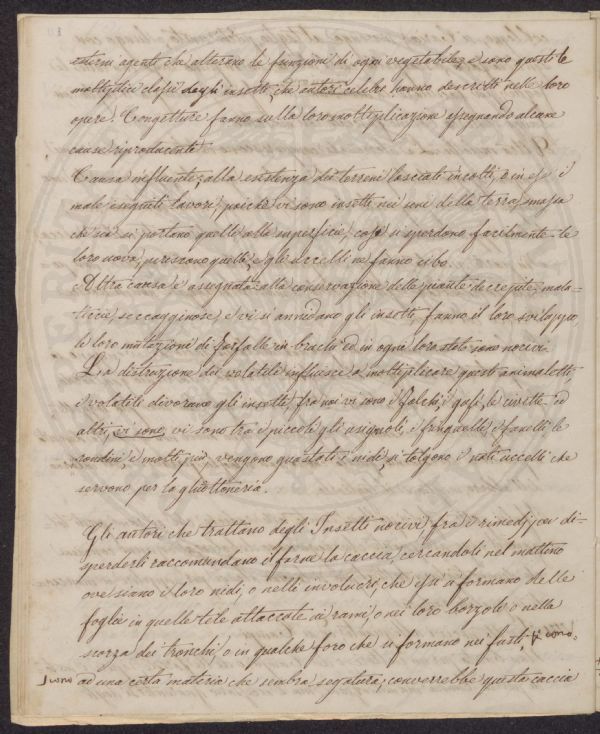 esterni agenti che alterano le funzioni di ogni vegetabile, e sono questi le
moltiplici classi degli insetti, che autori celebri hanno descritti nelle loro
opere. Congetture fanno sulla loro moltiplicazione assegnando alcune
cause riproducenti.
Causa influente, alla esistenza dei terreni lasciati incolti, o in essi i
male eseguiti lavori, poiché vi sono insetti nei seni della terra, smossa
che sia si portano quelli alla superficie, così si sperdono facilmente le
loro uova, periscono quelli, e gli uccelli ne fanno cibo.
Altra causa è assegnata alla conservazione delle piante decrepite, mala-
ticcie, seccagginose, e vi si annidano gli insetti, fanno il loro sviluppo,
le loro mutazione di farfalle in bruchi ed in ogni loro stato sono nocivi.
La distruzione dei volatili influisce a moltiplicare questi animaletti,
i volatili divorano gli insetti, fra noi vi sono i falchi, i gufi, le civette ed
altri, vi sono, vi sono tra i piccoli gli usignuoli, i fringuelli, i fanelli le
rondini, e molti più, vengono guastati i nidi, si tolgono i nati uccelli che
servono per la ghiottoneria.
Gli autori che trattano degli Insetti nocivi fra i rimedj per di-
sperderli raccomandano il farne la caccia, cercandoli nel mattino
ove siano i loro nidi, o nelli involucri, che essi si formano delle
foglie in quelle tele attaccate ai rami, o nei loro bozzoli o nella
scorza dei tronchi, o in qualche foro che si formano nei fusti,
ad una certa materia che sembra segatura, converrebbe questa caccia